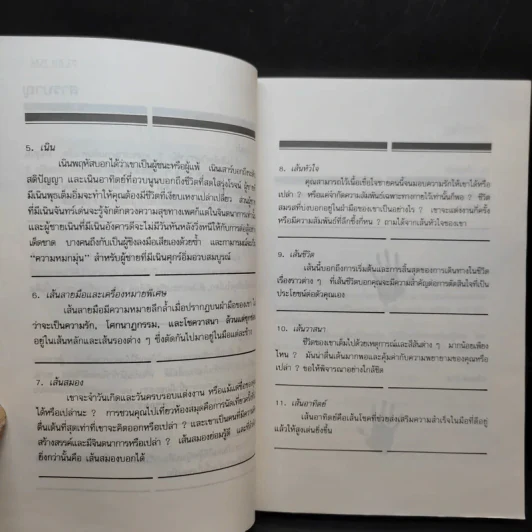 5. เนิน
เนินพฤหัสบอกได้ว่าเขาเป็นผู้ชนะหรือผู้แพ้ เนินเสาร์บอกถึง
สติปัญญา และเนินอาทิตย์ที่อวบนูนบอกถึงชีวิตที่สดใสรุ่งโรจน์
มีเนินพุธเต็มอิ่มจะทำให้คุณต้องมีชีวิตที่เงียบเหงาเปล่าเปลี่ยว
ที่มีเนินจันทร์เด่นจะรู้จักตักตวงความสุขทางเพศก็แต่ในจินตนาการ
และผู้ชายที่มีเนินอังคารดีจะไม่มีวันหันหลังวิ่งหนีให้กับการต่อสู้
เด็ดขาด บางคนถึงกับเป็นผู้ชิงลงมือเสียเองด้วยซ้ำ
“ความหมกมุ่น” สำหรับผู้ชายที่มีเนินศุกร์อิ่มอวบสมบูรณ์
6. เส้นลายมือและเครื่องหมายพิเศษ
เส้นลายมือมีความหมายลึกล้ำเมื่อปรากฏบนฝ่ามือของเขา
ว่าจะเป็นความรัก, โศกนาฏกรรม, และโชควาสนา ล้วนแต่
อยู่ในเส้นหลักและเส้นรองต่าง ๆ ซึ่งตัดกันไปมาอยู่ในมือแต่ละข้าง
7. เส้นสมอง
เขาจะจำวันเกิดและวันครบรอบแต่งงาน หรือแม้แต่ชื่อของคุณ
ได้หรือเปล่านะ ? การชวนคุณไปเที่ยวห้องสมุดคือการนัดเที่ยว
ตื่นเต้นที่สุดเท่าที่เขาจะคิดออกหรือเปล่า ? และเขาเป็นคนที่มีความคิด
สร้างสรรค์และมีจินตนาการหรือเปล่า ? เส้นสมองย่อมรู้ดี
ยิ่งกว่านั้นคือ เส้นสมองบอกได้
8. เส้นหัวใจ
คุณสามารถไว้เนื้อเชื่อใจชายคนนี้จนมอบความรักให้เขาได้หรือ
เปล่า ? หรือแค่จำกัดความสัมพันธ์เฉพาะทางกายไว้เท่านั้นก็พอ ? ชีวิต
สมรสที่บ่งบอกอยู่ในฝ่ามือของเขาเป็นอย่างไร ? เขาจะแต่งงานกี่ครั้ง
หรือมีความสัมพันธ์ที่ลึกซึ้งกี่หน ? ถามได้จากเส้นหัวใจของเขา
9. เส้นชีวิต
เส้นนี้บอกถึงการเริ่มต้นและการสิ้นสุดของการเดินทางในชีวิต
เรื่องราวต่าง ๆ ที่เส้นชีวิตบอกคุณจะมีความสำคัญต่อการตัดสินใจที่เป็น
ประโยชน์ต่อตัวคุณเอง
10. เส้นวาสนา
ชีวิตของเขาเต็มไปด้วยเหตุการณ์และสีสันต่าง ๆ มากน้อยเพียง
ไหน ? มันน่าตื่นเต้นมากพอและคุ้มค่ากับความพยายามของคุณหรือ
เปล่า ? ขอให้พิจารณาอย่างใกล้ชิด
11. เส้นอาทิตย์
เส้นอาทิตย์คือเส้นโชคที่ช่วยส่งเสริมความสำเร็จในมือที่ดีอยู่
แล้วให้สูงเด่นยิ่งขึ้น